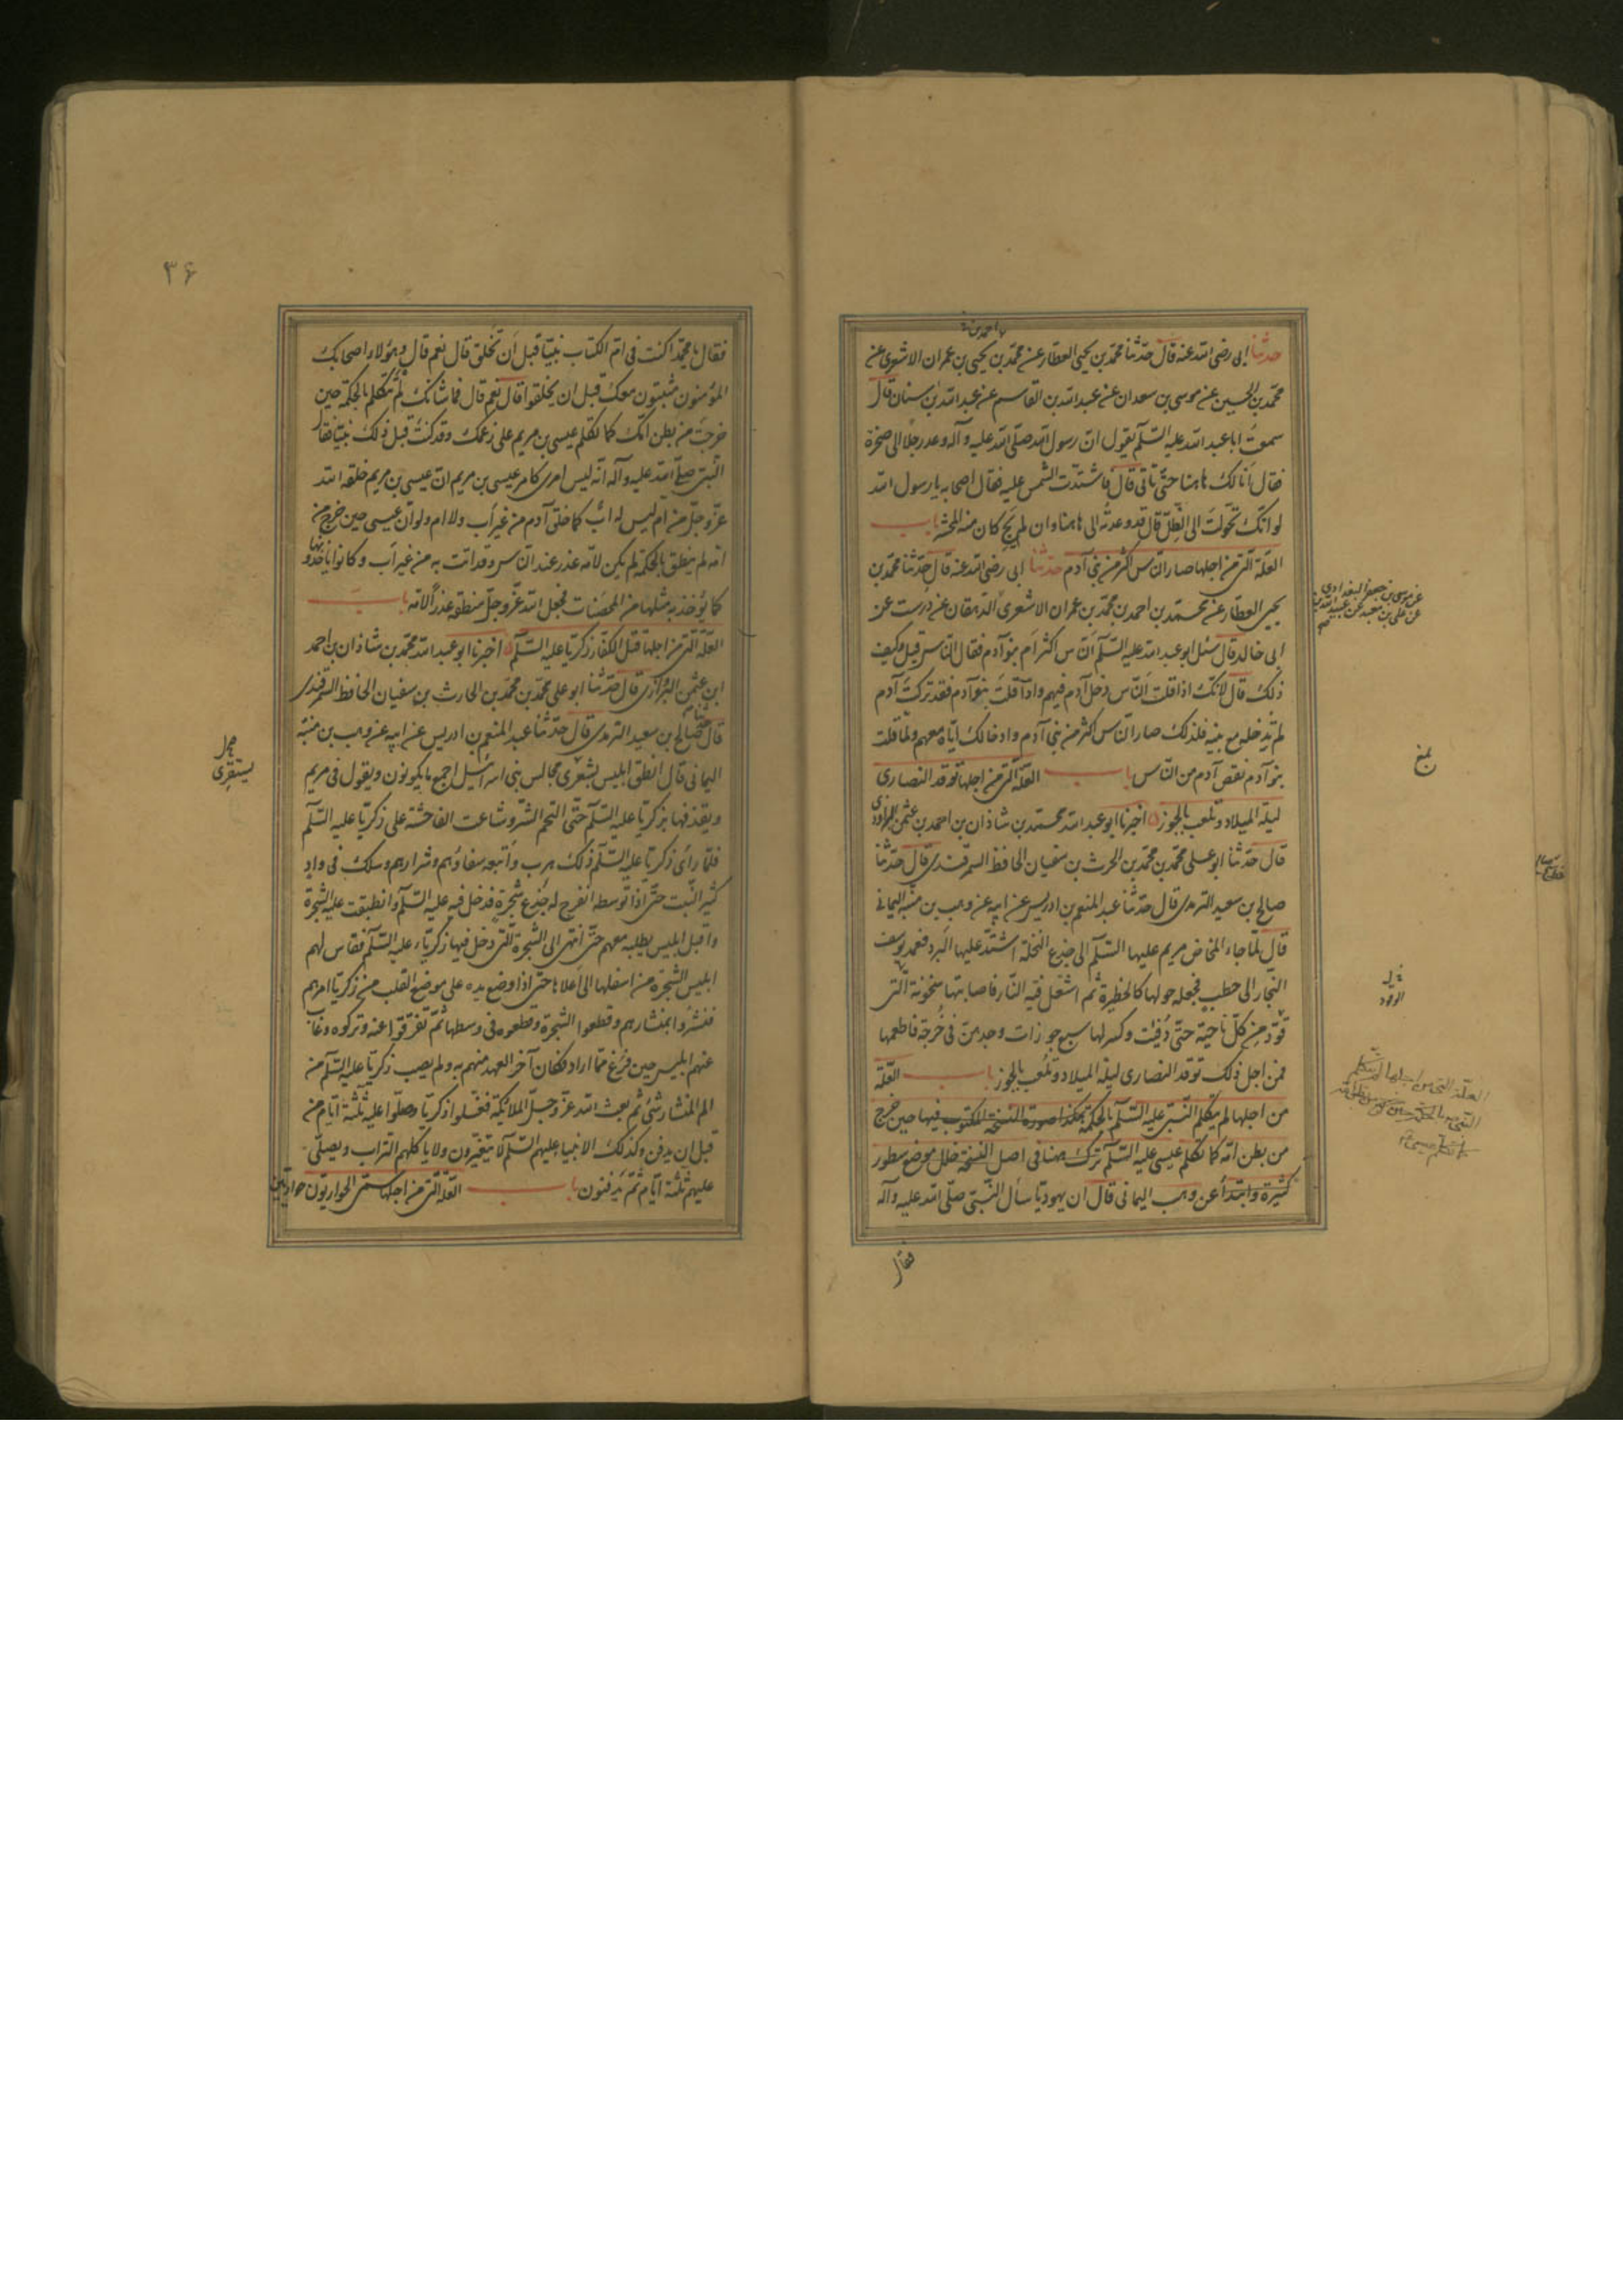 حدثنا ابى رضى الله عنه قال حدّثنا محمّد بن يحيى العطار عن محمّد بن يحيى بن عمران الاشعرى عن
محمّد بن الحسين عن موسى بن سعدان عن عبد الله بن القاسم عن عبد الله بن سنان قال
سمعتُ ابا عبد الله عليه السّلم يقول انّ رسول الله صلّى الله عليه وآله وعد رجلًا الى صخرة
فقال اَنا لك هاهنا حتّى تاتى قال فاشتدّت الشمس عليه فقال اصحابه يا رسول الله
لو انّك تحوّلتَ الى الظِلّ قال قد وعدتُه الى هاهنا وان لم يجِ كان منه المحشر باب
العلة الّتى من اجلها صار النّاس اكثر من بنى آدم حدثنا ابى رضى الله عنه قال حدّثنا محمّد بن
يحيى العطار عن محمّد بن احمد بن محمّد بن عمران الاشعرىّ الدهقان عن درست عن
ابى خالد قال سئل ابو عبد الله عليه السّلم النّاس اكثر اَم بنو آدم فقال النّاس قيل وكيف
ذلك قال لانّك اذا قلت النّاس دخل آدم فيهم واذا قلتَ بنو آدم فقد تركتَ آدم
لم تدخله مع بنيه فلذلك صار النّاس اكثر من بنى آدم وادخالك ايّاه معهم ولمّا قلت
بنو آدم نقص آدم من النّاس باب العلّة الّتى من اجلها توقد النصارى
ليلة الميلاد وتلعب بالجوز اخبرنا ابو عبد الله محمّد بن شاذان بن احمد بن عثمن البراوذى
قال حدّثنا ابو على محمّد بن محمّد بن الحرث بن سفيان الحافظ السمرقندى قال حدّثنا
صالح بن سعيد الترمذى قال حدّثنا عبد المنعم بن ادريس عن ابيه عن وهب بن منبّه اليمانى
قال لمّا جاء المخاض مريم عليها السّلم الى جذع النخلة اشتدّ عليها البَرد فعمد يوسف
النجار الى حطب فجعله حولها كالحظيرة ثم اشعل فيه النّار فاصابتها سخونة الّتى
قود من كلّ ناحية حتّى دُفِئت وكسر لها سبع جوزات وجدهنّ فى خُرجه فاطعمها
فمن اجل ذلك توقد النصارى ليلة الميلاد وتلعب بالجوز باب العلّة
من اجلها لم يتكلم النّبىّ عليه السّلم بالحكمة هكذا صورة النسخة المكتوب فيها حين خرج
من بطن امّه كما تكلم عيسى عليه السّلم ترك هيهنا فى اصل النسخة خلل موضع سطور
كثيرة وابتدأ عن وهب اليمانى قال ان يهوديّا سأل النّبىّ صلّى الله عليه وآله
فقال
بلغ
٣٦
فقال يا محمّد اكنت فى امّ الكتاب نبيّا قبل اَن تخلق قال نعم قال وهؤلاء اصحابك
المؤمنون مثبتون معك قبل ان يخلقوا قال نعم قال فما شانك لم تتكلم بالحكمة حين
خرجتَ من بطن امّك كما تكلم عيسى بن مريم على زعمك وقد كنت قبل ذلك نبيّا فقال
النّبىّ صلّى الله عليه وآله انّه ليس امرى كامر عيسى بن مريم انّ عيسى بن مريم خلقه الله
عزّ وجلّ من ام ليس له ابٌ كما خلق آدم من غير اَب ولا ام ولو انّ عيسى حين خرج من
امّه لم ينطق بالحكمة لم يكن لامّه عذر عند النّاس وقد اتت به من غير اَب وكانوا ياخذونها
كما يُؤخذ به مثلها من المحصَنات فجعل الله عزّ وجلّ منطقه عذراً لامّه باب
العلّة الّتى من اجلها قتل الكفّار زكريّا عليه السّلم اخبرنا ابو عبد الله محمّد بن شاذان بن احمد
ابن عثمن البرواذى قال حدّثنا ابو على محمّد بن محمّد بن الحارث بن سفيان الحافظ السمرقندى
قال حدثنا صالح بن سعيد الترمذى قال حدّثنا عبد المنعم بن ادريس عن ابيه عن وهب بن منبّه
اليمانى قال انطلق ابليس يستقرى مجالس بنى اسرائيل اجمع ما يكونون ويقول فى مريم
ويقذفها بزكريّا عليه السّلم حتّى التحم الشرّ وشاعت الفاحشة على زكريّا عليه السّلم
فلمّا رأى زكريّا عليه السّلم ذلك هرب واتبعه سفهاؤهم وشرارهم وسلك فى وادٍ
كثير النّبت حتّى اذا توسطه انفرج له جِذع شجرة فدخل فيه عليه السّلم وانطبقت عليه الشجرة
واقبل ابليس يطلبه معهم حتّى انتهى الى الشجرة الّتى دخل فيها زكريّاء عليه السّلم فقاس لهم
ابليس الشجرة من اسفلها الى اَعلاها حتّى اذا وضع يده على موضع القلب من زكريّا امرهم
فنشروا بمنشارهم وقطعوا الشجرة وقطعوه فى وسطها ثمّ تفرّقوا عنه وتركوه وغاب
عنهم ابليس حين فرغ ممّا اراد فكان آخر العهد منهم به ولم يصب زكريّا عليه السّلم من
الم المنشار شئ ثم بعث الله عزّ وجلّ الملائكة فغسلوا زكريّا وصلّوا عليه ثلثة ايّام من
قبل ان يدفن وكذلك الانبياء عليهم السّلم لا يتغيّرون ولا ياكلهم التراب ويصلّى
عليهم ثلثة ايّام ثمّ يدفنون باب العلّة الّتى من اجلها سمّى الحواريّون حواريّين
يستقرى